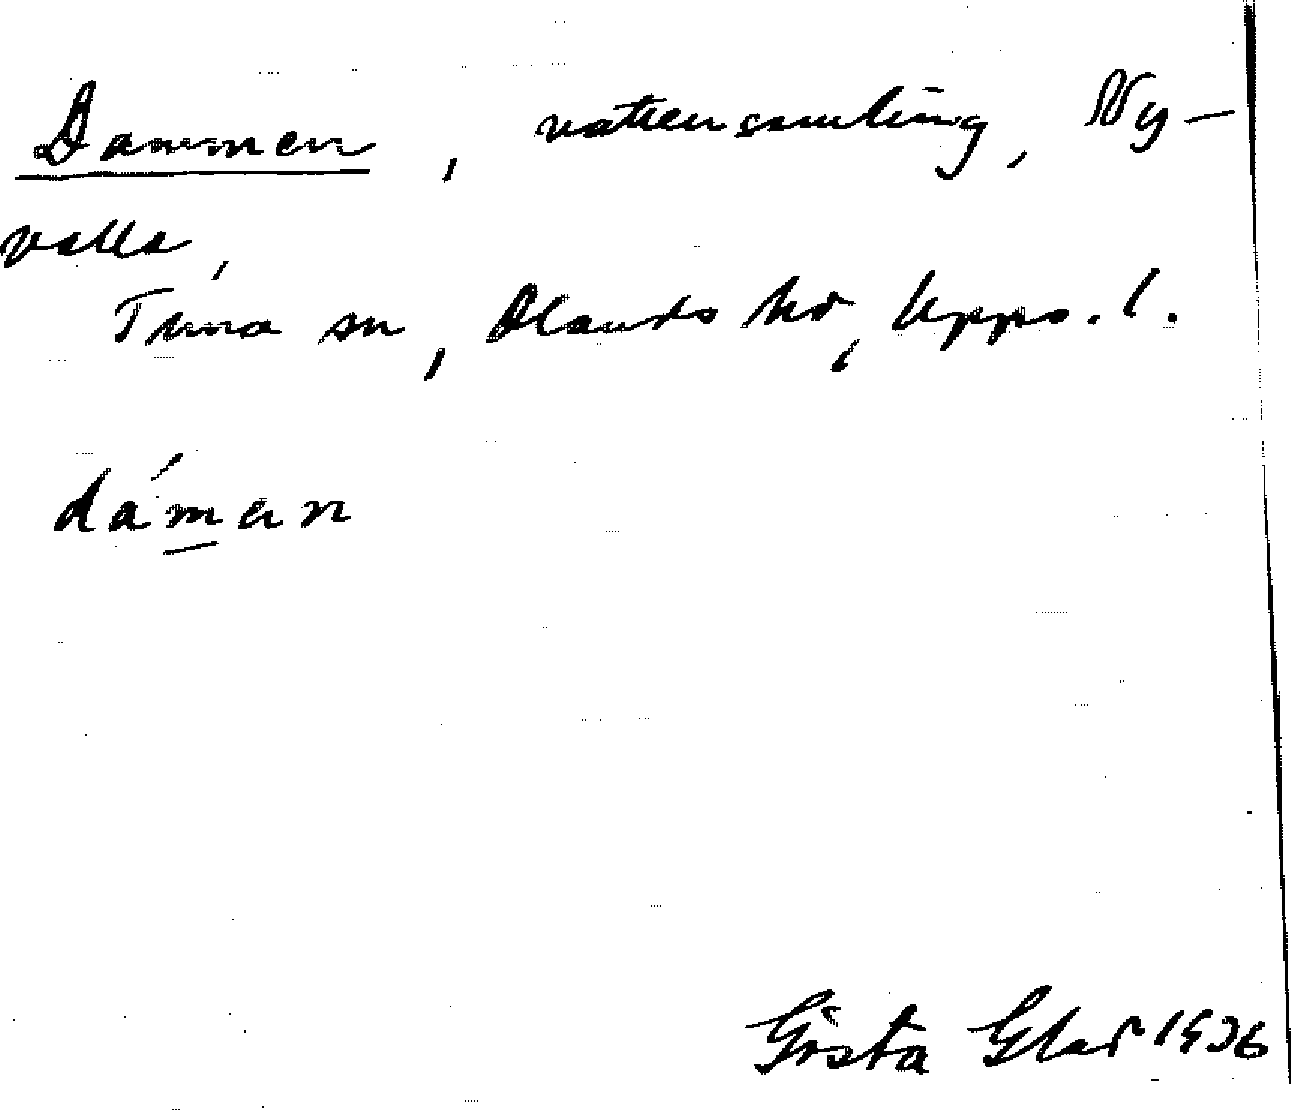 Dammen, vattensamling, Ny-
valla,
Tuna sn, Olands hd, Upps. l.
dám̲an
Gösta Glad 1936